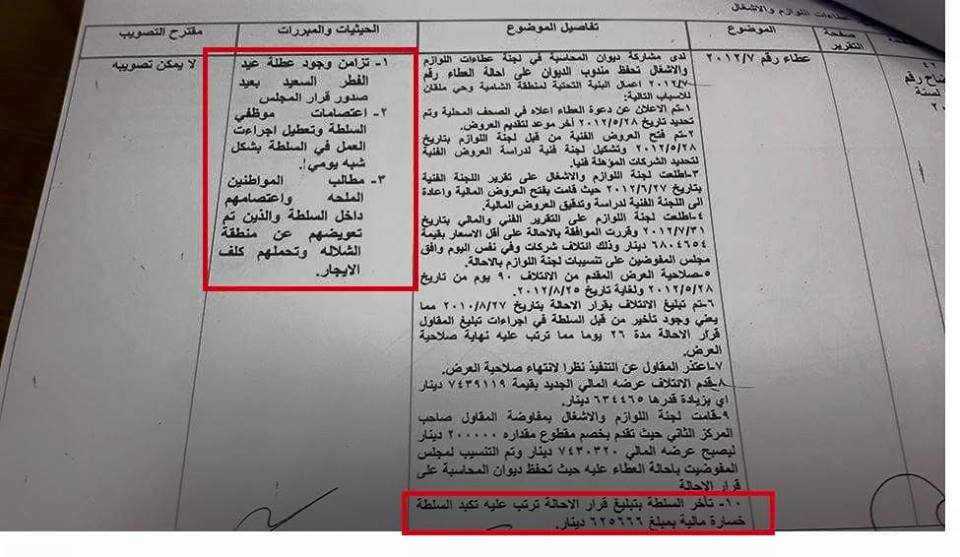 عطاءات اللوازم والاشغال
صفحة
التقرير
الموضوع
تفاصيل الموضوع
الحيثيات والمبررات
مقترح التصويب
عطاء رقم ٢٠١٢/٧
لدى مشاركة ديوان المحاسبة في لجنة عطاءات اللوازم
والاشغال تحفظ مندوب الديوان على احالة العطاء رقم
٢٠١٢/٧ اعمال البنية التحتية لمنطقة الشامية وحي ملقان
للاسباب التالية:
١-تم الاعلان عن دعوة العطاء اعلاه في الصحف المحلية وتم
تحديد تاريخ ٢٠١٢/٥/٢٨ آخر موعد لتقديم العروض.
٢-تم فتح العروض الفنية من قبل لجنة اللوازم بتاريخ
٢٠١٢/٥/٢٨ وتشكيل لجنة فنية لدراسة العروض الفنية
لتحديد الشركات المؤهلة فنيا.
٣-اطلعت لجنة اللوازم والاشغال على تقرير اللجنة الفنية
بتاريخ ٢٠١٢/٦/٢٧ حيث قامت بفتح العروض المالية واعادة
الى اللجنة الفنية لدراسة وتدقيق العروض المالية.
٤-اطلعت لجنة اللوازم على التقرير الفني والمالي بتاريخ
٢٠١٢/٧/٣١ وقررت الموافقة بالاحالة على أقل الاسعار بقيمة
٦٨٠٤٦٥٤ دينار وذلك ائتلاف شركات وفي نفس اليوم وافق
مجلس المفوضين على تنسيبات لجنة اللوازم بالاحالة.
٥-صلاحية العرض المقدم من الائتلاف ٩٠ يوم من تاريخ
٢٠١٢/٥/٢٨ ولغاية تاريخ ٢٠١٢/٨/٢٥.
٦-تم تبليغ الائتلاف بقرار الاحالة بتاريخ ٢٠١٠/٨/٢٧ مما
يعني وجود تأخير من قبل السلطة في اجراءات تبليغ المقاول
قرار الاحالة مدة ٢٦ يوما مما ترتب عليه نهاية صلاحية
العرض.
٧-اعتذر المقاول عن التنفيذ نظرا لانتهاء صلاحية العرض.
٨-قدم الائتلاف عرضه المالي الجديد بقيمة ٧٤٣٩١١٩ دينار
اي بزيادة قدرها ٦٣٤٤٦٥ دينار.
٩-قامت لجنة اللوازم والاشغال بمفاوضة المقاول صاحب
المركز الثاني حيث تقدم بخصم مقطوع مقداره ٢٠٠٠٠٠ دينار
ليصبح عرضه المالي ٧٤٣٠٣٢٠ دينار وتم التنسيب لمجلس
المفوضيت باحالة العطاء عليه حيث تحفظ ديوان المحاسبة على
قرار الاحالة
١٠-تأخر السلطة بتبليغ قرار الاحالة ترتب عليه تكبد السلطة
خسارة مالية بمبلغ ٦٢٥٦٦٦ دينار.
١- تزامن وجود عطلة عيد
الفطر السعيد بعيد
صدور قرار المجلس
٢- اعتصامات موظفي
السلطة وتعطيل اجراءت
العمل في السلطة بشكل
شبه يومي!.
٣- مطالب المواطنين
الملحه واعتصامهم
داخل السلطة والذين تم
تعويضهم عن منطقة
الشلاله وتحملهم كلف
الايجار.
لا يمكن تصويبه